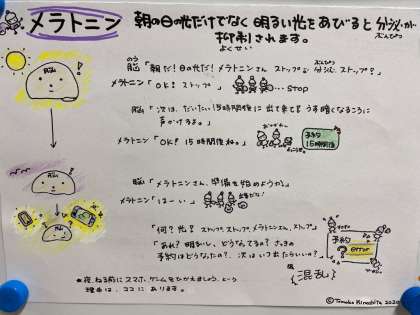 メラトニン
朝の日の光だけでなく 明るい光をあびると 分泌が
ぶんぴつ
抑制されます。
よくせい
のう
脳「朝だ！日の光だ！メラトニンさん ストップ 分泌 ストップ！」
ぶんぴつ
メラトニン「OK！ストップ！」 …stop
脳「次は、だいたい15時間後に 出て来てよ うす暗くなるころに
声かけるよ。」
メラトニン「OK！15時間後ね。」
予約
15時間後
脳「メラトニンさん、準備を始めようか」
メラトニン「はーい」
「何？光？ストップ、ストップ、メラトニンさん、ストップ」
「あれ？明るい、どうなってるの？さっきの
予約はどうなったの？ 次はいつ出たらいいの？」
予約
error
{混乱}
＊夜、ねる前に スマホ、ゲームをひかえましょう、という
理由は、ココに あります。
© Tomoko Kinoshita 2020